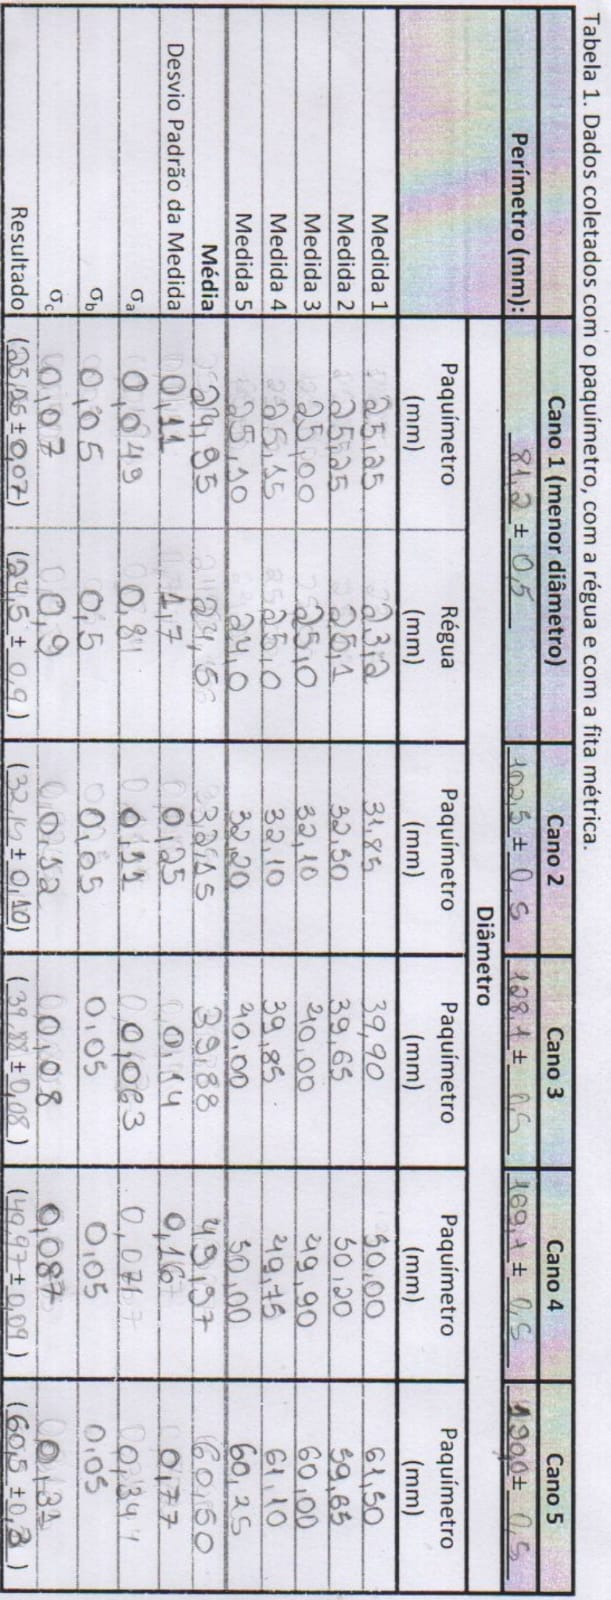 Tabela 1. Dados coletados com o paquímetro, com a régua e com a fita métrica.
Cano 1 (menor diâmetro) Cano 2 Cano 3 Cano 4 Cano 5
Perímetro (mm): 81,2 ± 0,5 102,5 ± 0,5 128,1 ± 0,5 169,1 ± 0,5 190,0 ± 0,5
Diâmetro
Paquímetro (mm) Régua (mm) Paquímetro (mm) Paquímetro (mm) Paquímetro (mm) Paquímetro (mm)
Medida 1 25,25 23,2 31,85 39,90 50,00 61,50
Medida 2 25,25 25,1 32,50 39,65 50,20 59,65
Medida 3 25,00 25,0 32,10 40,00 49,90 60,00
Medida 4 25,15 25,0 32,10 39,85 49,75 61,10
Medida 5 25,10 24,0 32,20 40,00 50,00 60,25
Média 24,95 24,5 32,15 39,88 49,97 60,50
Desvio Padrão da Medida 0,11 1,7 0,25 0,14 0,167 0,77
σa 0,049 0,81 0,11 0,063 0,0767 0,344
σb 0,05 0,5 0,05 0,05 0,05 0,05
σc 0,07 0,9 0,12 0,08 0,087 0,31
Resultado: (25,05 ± 0,07) (24,5 ± 0,9) (32,15 ± 0,10) (39,88 ± 0,08) (49,97 ± 0,09) (60,5 ± 0,3)